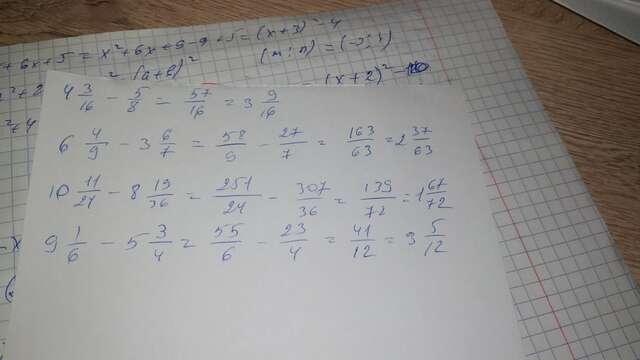 +6x+5 = x²+6x+9-9+5 = (x+3)²-4
= (a+b)²
(m;n) = (-3;
= (x+2)²-
4 3/16 - 5/8 = 57/16 = 3 9/16
6 4/9 - 3 6/7 = 58/9 - 27/7 = 163/63 = 2 37/63
10 11/24 - 8 19/36 = 251/24 - 307/36 = 139/72 = 1 67/72
9 1/6 - 5 3/4 = 55/6 - 23/4 = 41/12 = 3 5/12